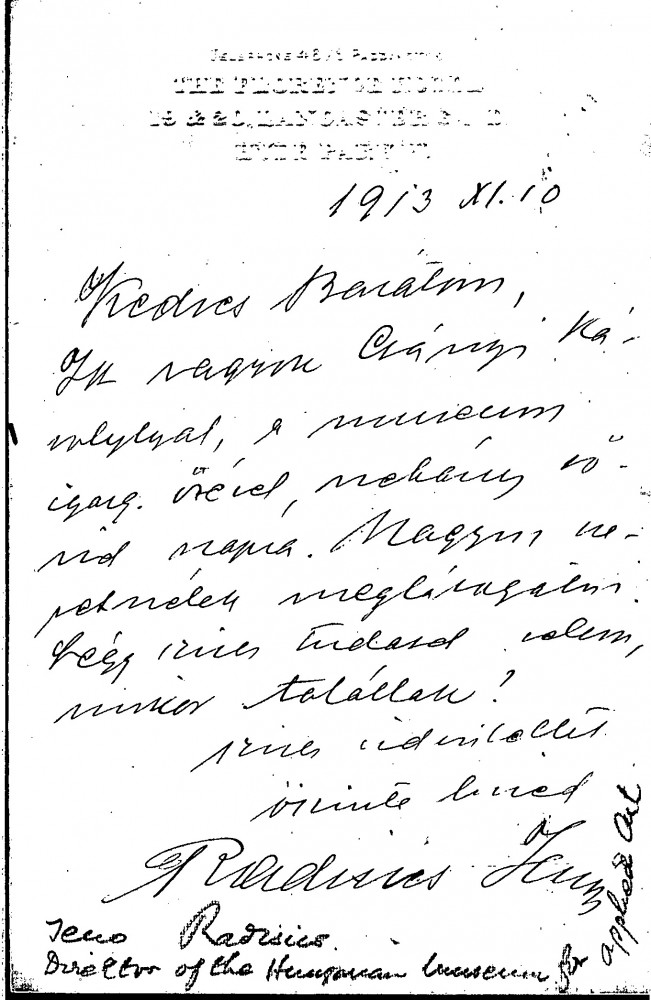 TELEPHONE 4878 PADDINGTON
THE FLORENCE HOTEL
19 & 20, LANCASTER
HYDE PARK W.
1913 XI. 10
Kedves Barátom,
Itt vagyok Csányi Ká-
rolylyal, a museum
igazg. őrével, nehány rö-
vid napra. Nagyon sze-
retnélek meglátogatni.
Légy szives tudasd velem,
mikor talállak?
szives üdvözlettel
őszinte hived
Radisics Jenő
Jeno Radisics.
Director of the Hungarian Museum for
applied Art